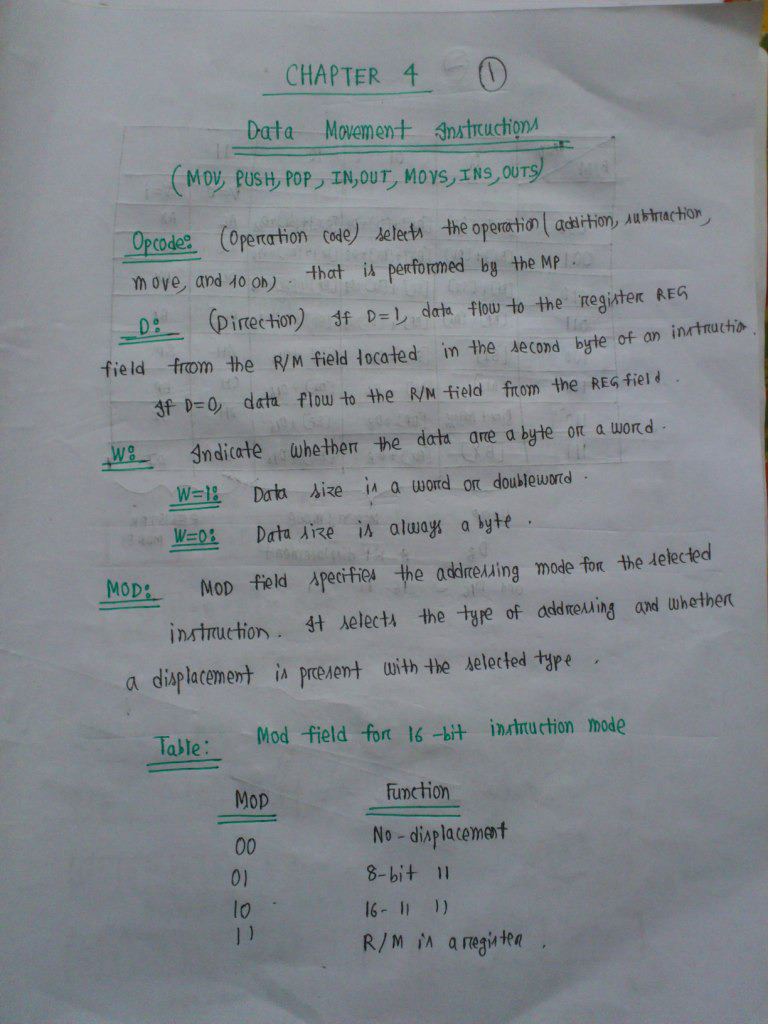 CHAPTER 4 1
Data Movement Instructions
(MOV, PUSH, POP, IN, OUT, MOVS, INS, OUTS)
Opcode: (Operation code) selects the operation (addition, subtraction,
move, and so on) that is performed by the MP.
D: (Direction) If D=1, data flow to the register REG
field from the R/M field located in the second byte of an instructio
If D=0, data flow to the R/M field from the REG field.
W: Indicate whether the data are a byte or a word.
W=1: Data size is a word or doubleword.
W=0: Data size is always a byte.
MOD: MOD field specifies the addressing mode for the selected
instruction. It selects the type of addressing and whether
a displacement is present with the selected type.
Table: Mod field for 16-bit instruction mode
MOD Function
00 No-displacement
01 8-bit 11
10 16- 11 11
11 R/M is a register.